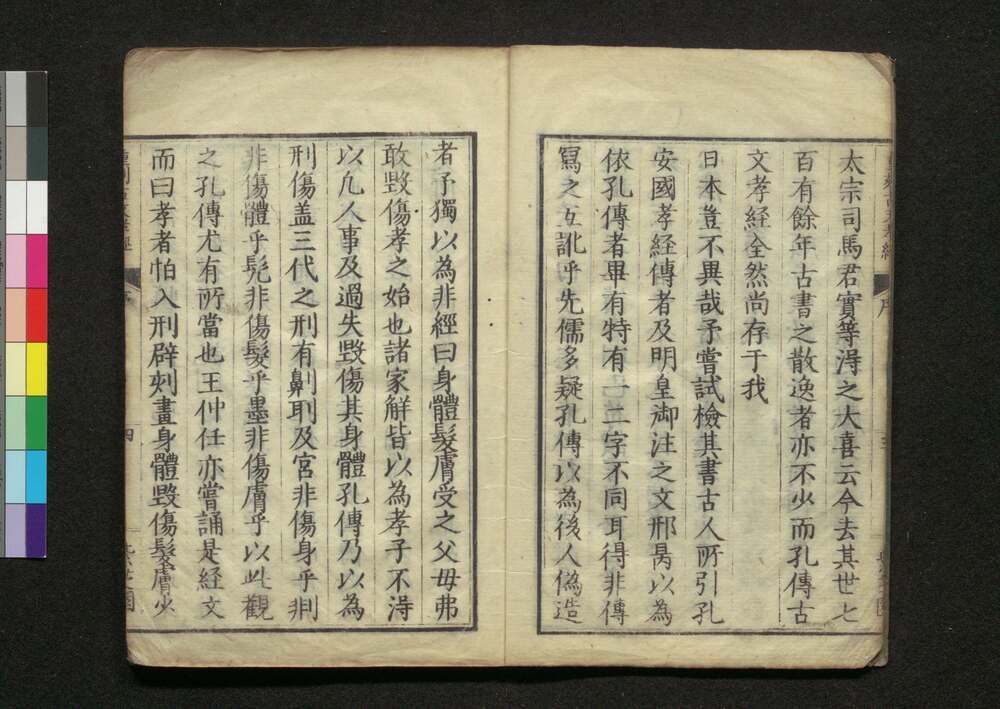 太宗司馬君實等淂之大喜云今去其世七
百有餘年古書之散逸者亦不少而孔傳古
文孝經全然尚存于我
日本豈不異哉予嘗試檢其書古人所引孔
安國孝經傳者及明皇御注之文邢昺以為
依孔傳者畢有特有一二字不同耳得非傳
寫之互訛乎先儒多疑孔傳以為後人偽造
者予獨以為非經曰身體髮膚受之父毋弗
敢毀傷孝之始也諸家解皆以為孝子不淂
以凢人事及過失毀傷其身體孔傳乃以為
刑傷盖三代之刑有劓刵及宮非傷身乎刖
非傷體乎髡非傷髮乎墨非傷膚乎以此觀
之孔傳尤有所當也王仲任亦嘗誦是経文
而曰孝者怕入刑辟刻畫身體毀傷髮膚火
四